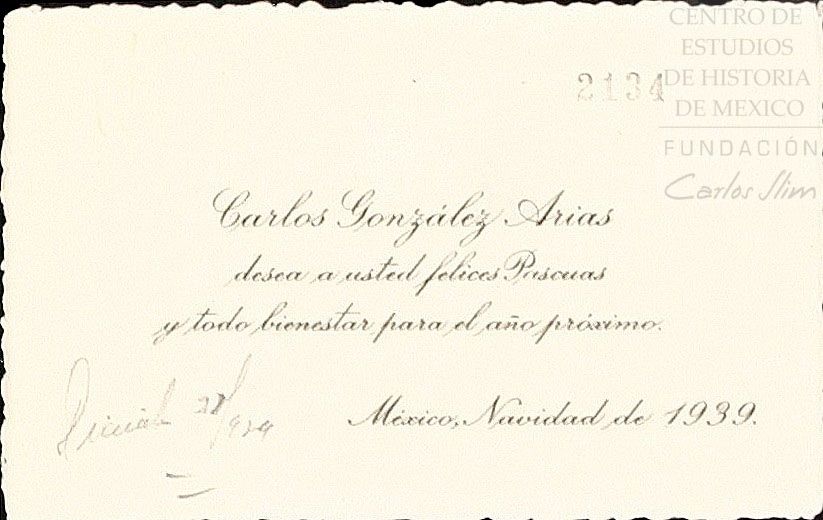 CENTRO DE
ESTUDIOS
DE HISTORIA
DE MEXICO
FUNDACIÓN
Carlos Slim
2134
Carlos González Arias
desea a usted felices Pascuas
y todo bienestar para el año próximo.
México, Navidad de 1939.